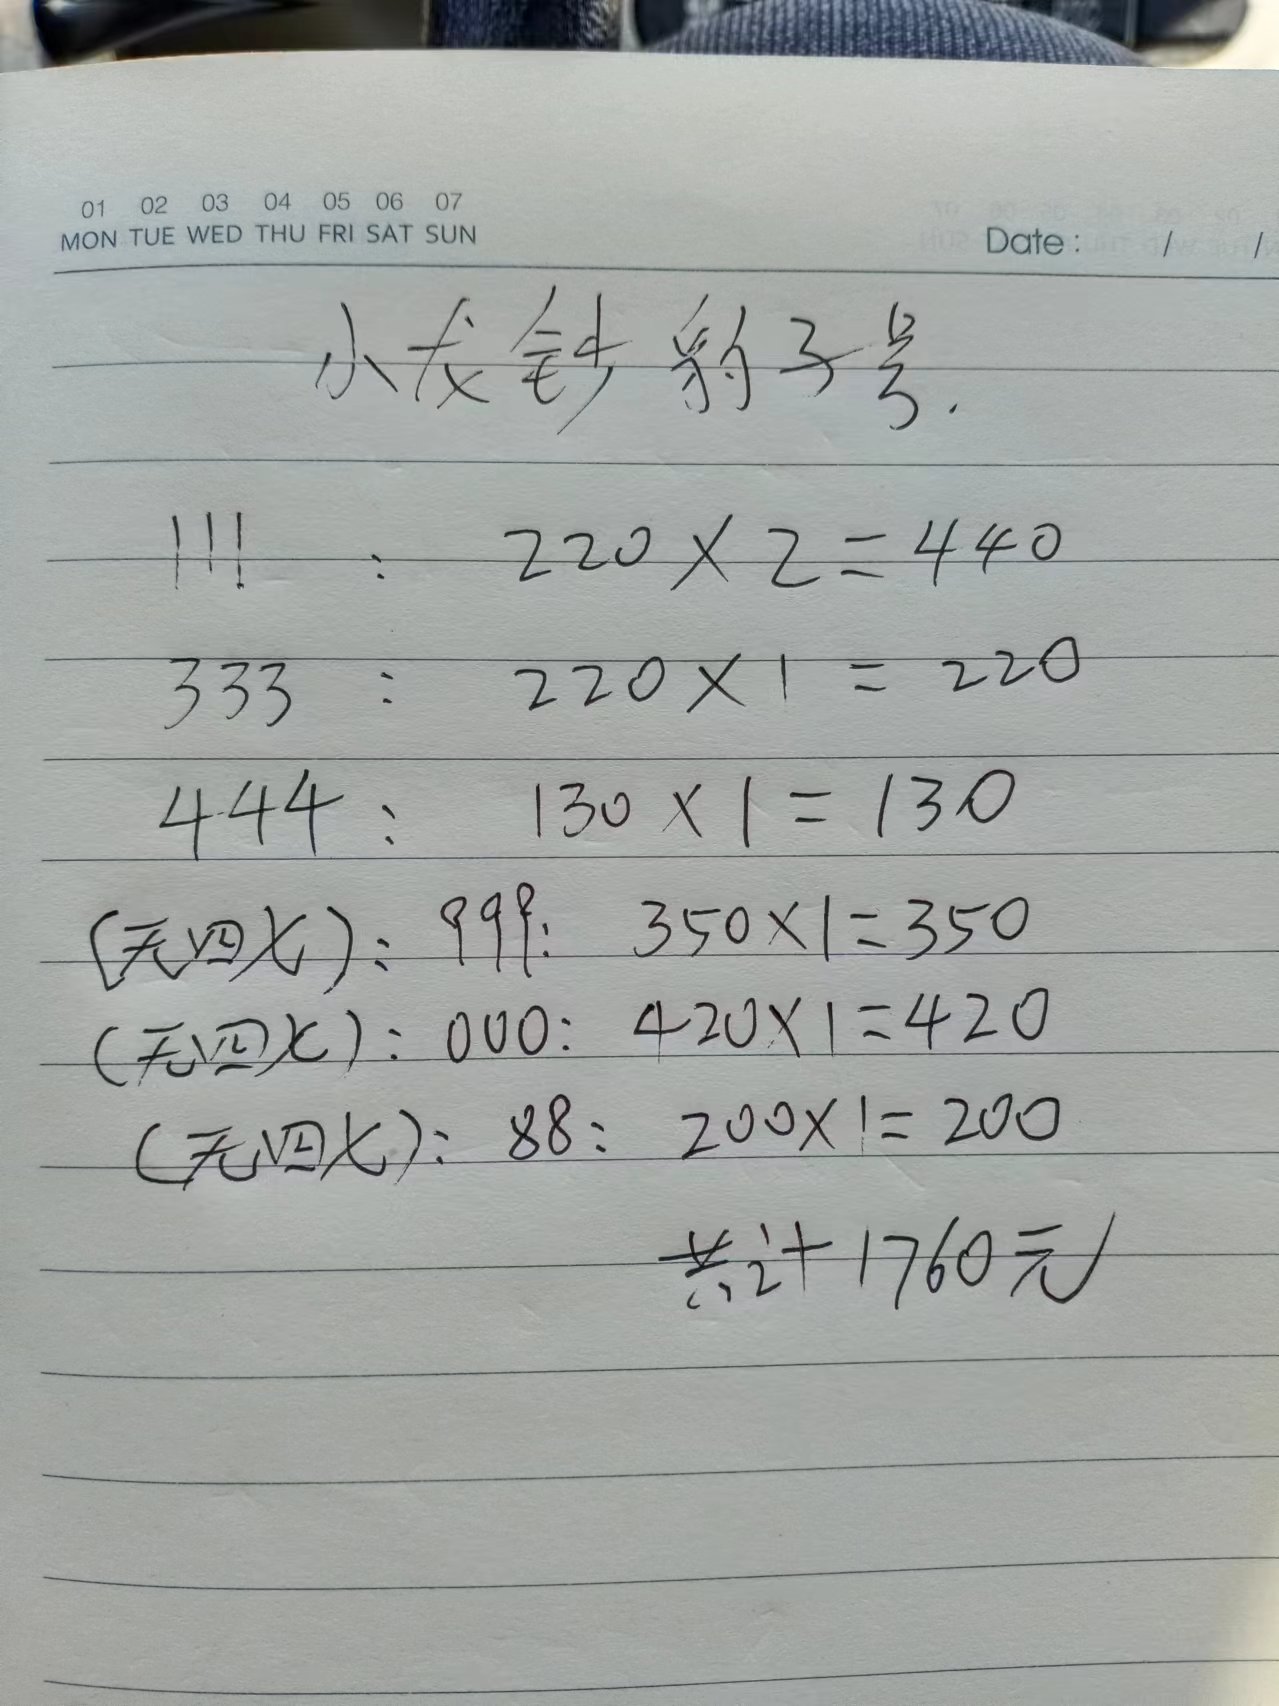 01 02 03 04 05 06 07
MON TUE WED THU FRI SAT SUN
Date: / /
小龙钞豹子号.
111 : 220×2=440
333 : 220×1=220
444 : 130×1=130
(无四七): 999: 350×1=350
(无四七): 000: 420×1=420
(无四七): 88: 200×1=200
共计1760元